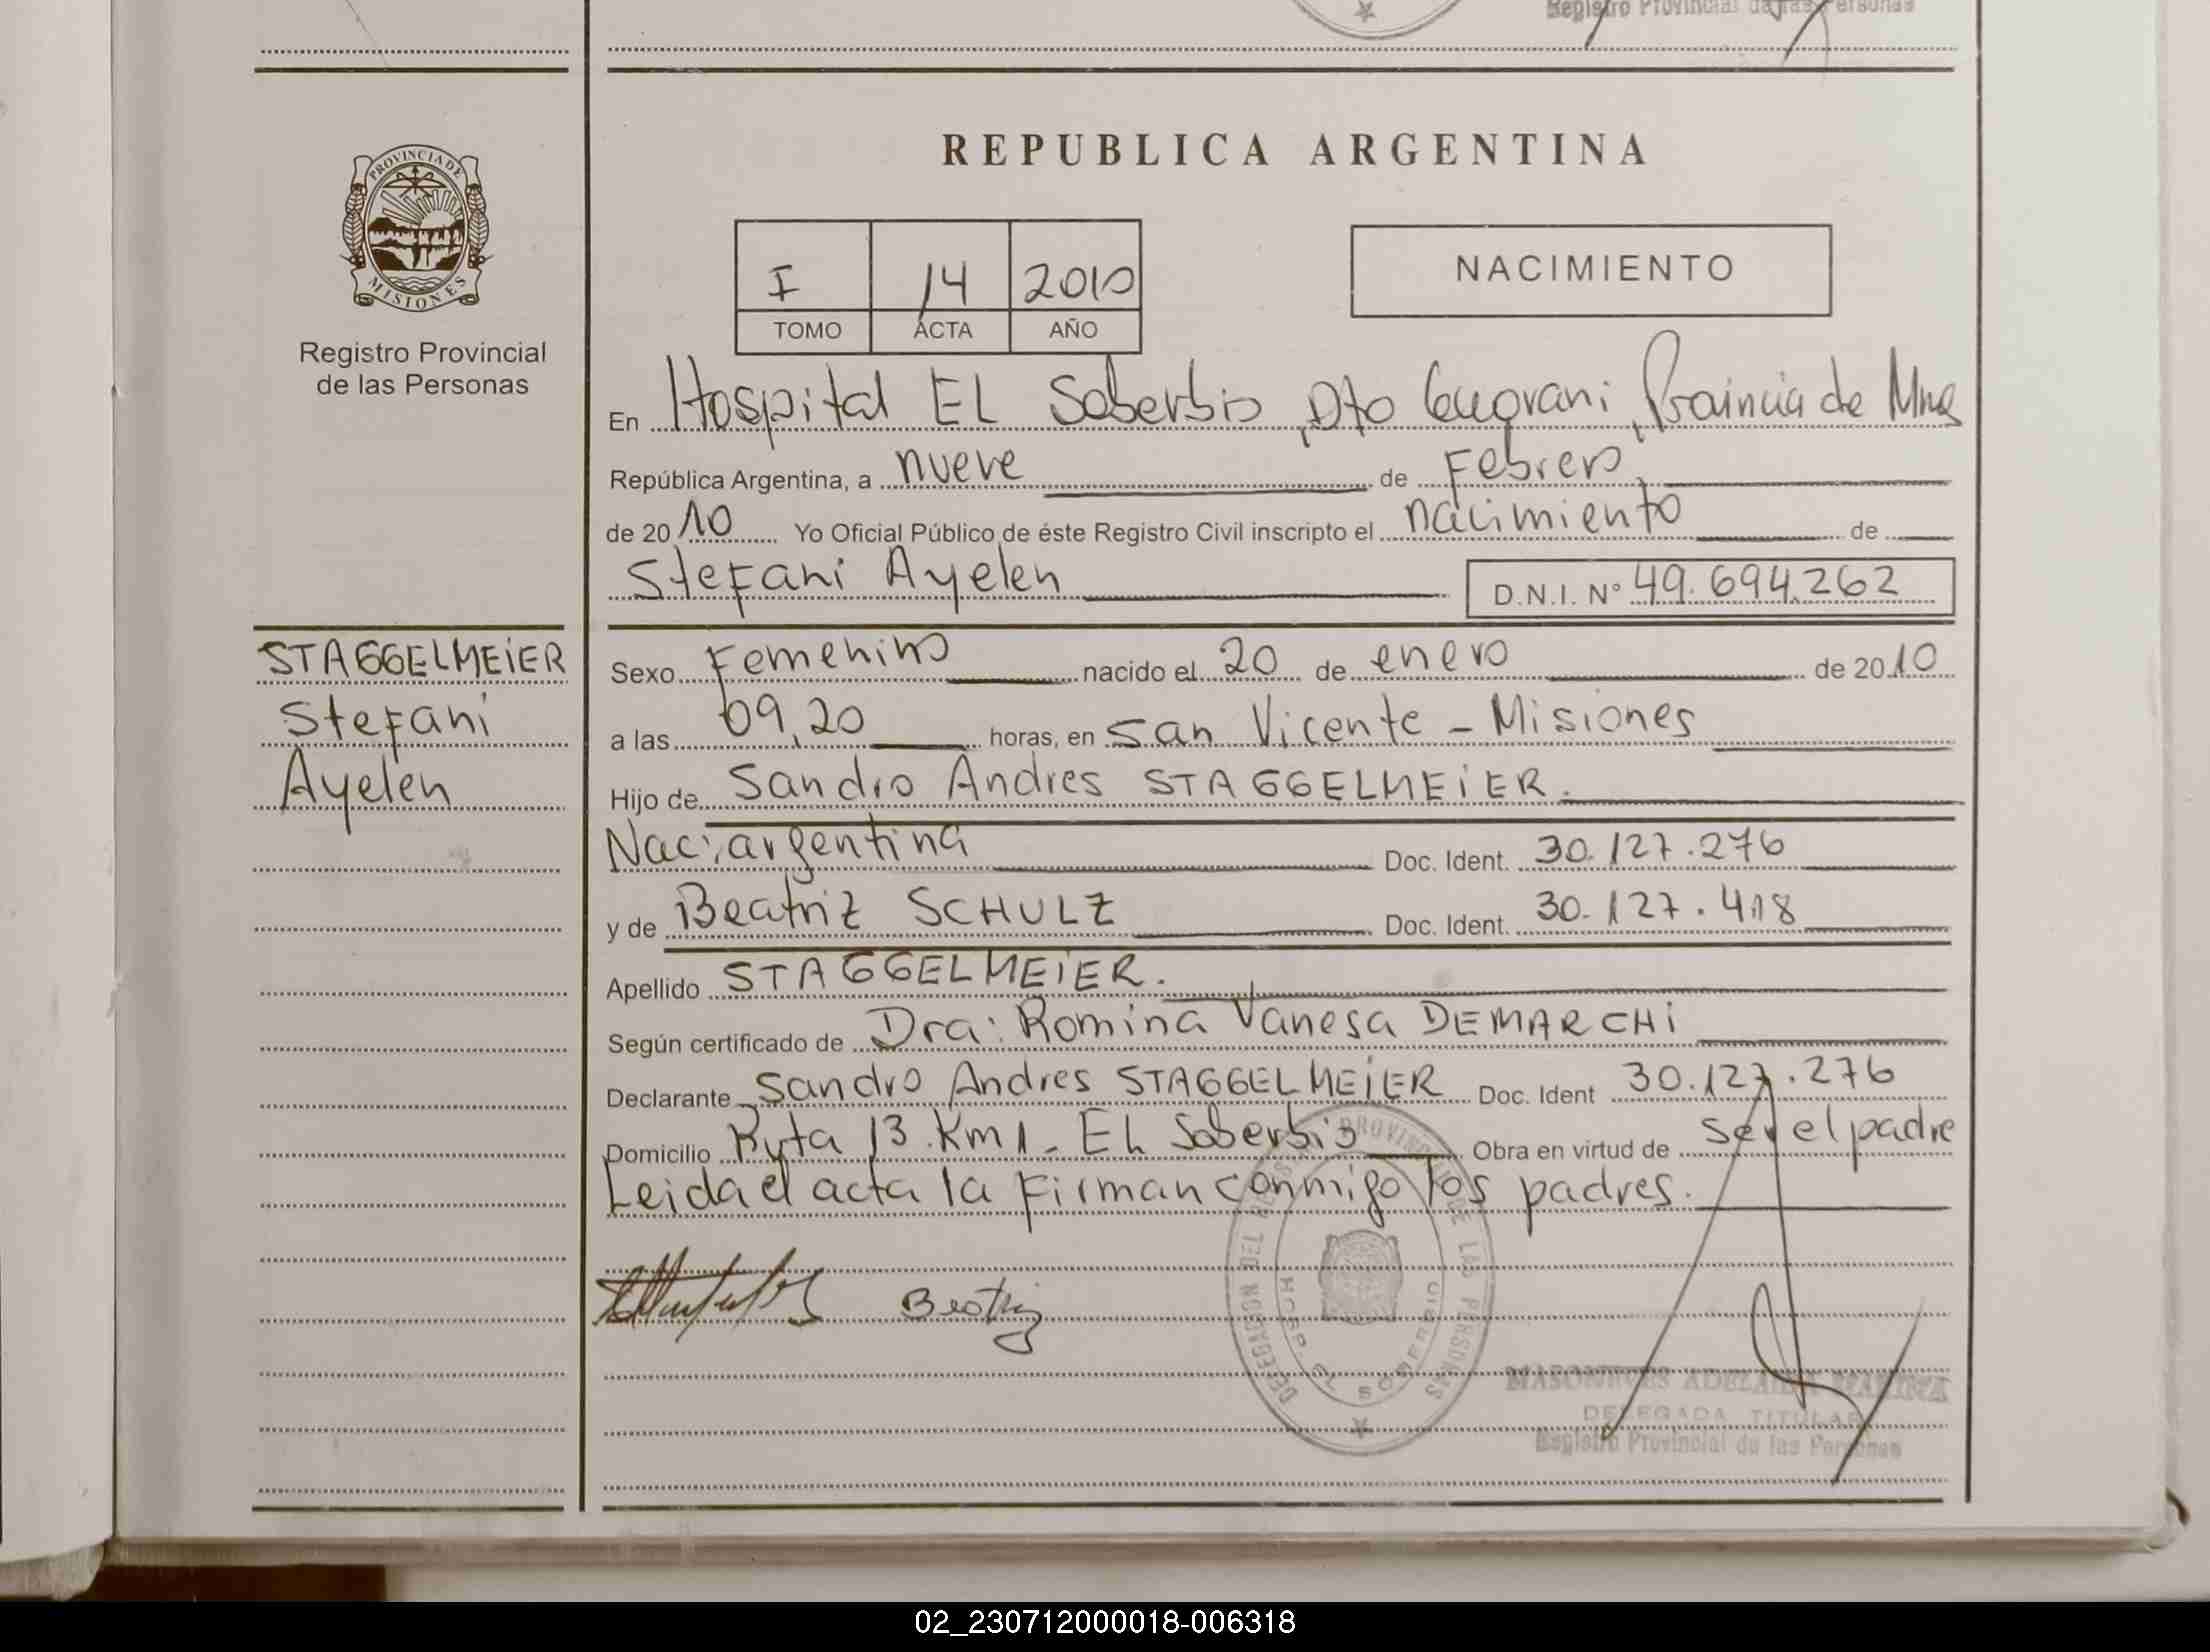 Registro Provincial de las Personas
REPUBLICA ARGENTINA
PROVINCIA DE
MISIONES
Registro Provincial
de las Personas
I 14 2010
TOMO ACTA AÑO
NACIMIENTO
En Hospital EL Soberbio, Dto Guarani, Provincia de Mnes
República Argentina, a nueve de Febrero
de 2010 Yo Oficial Público de éste Registro Civil inscripto el nacimiento de
Stefani Ayelen D.N.I. Nº 49.694.262
STAGGELMEIER
Stefani
Ayelen
Sexo Femenino nacido el 20 de enero de 2010
a las 09,20 horas, en San Vicente - Misiones
Hijo de Sandro Andres STAGGELMEIER.
Nac: argentina Doc. Ident. 30.127.276
y de Beatriz SCHULZ Doc. Ident. 30.127.418
Apellido STAGGELMEIER.
Según certificado de Dra: Romina Vanesa DEMARCHI
Declarante Sandro Andres STAGGELMEIER Doc. Ident 30.127.276
Domicilio Ruta 13 Km 1 - EL Soberbio Obra en virtud de ser el padre
Leida el acta la firman conmigo los padres.
Beatriz
DELEGACION DEL REGISTRO PROVINCIAL DE LAS PERSONAS
HOSP. EL SOBERBIO
ADELAIDA MARINA
DELEGADA TITULAR
Registro Provincial de las Personas
02_230712000018-006318